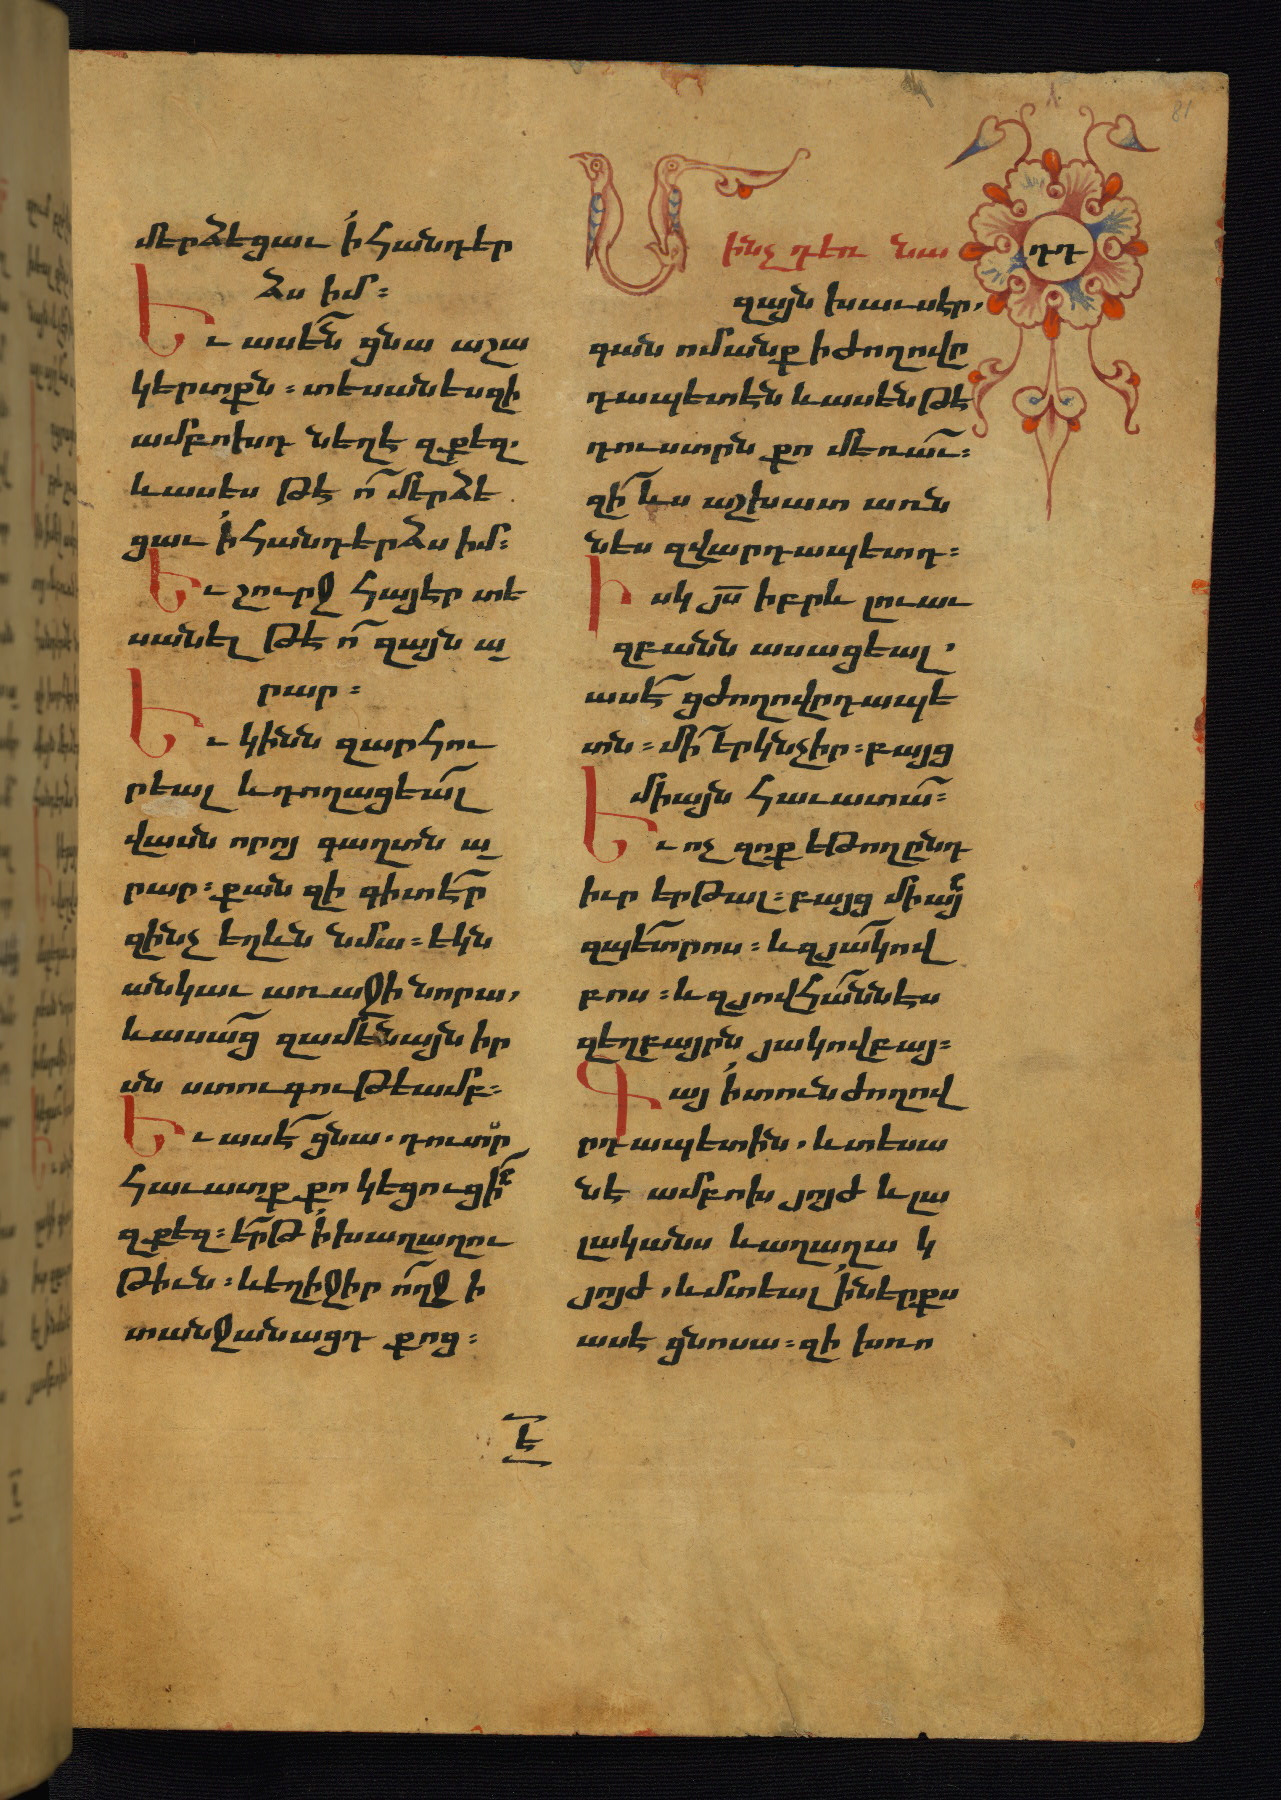 մերձեցաւ ի հանդեր
ձս իմ։
Եւ ասեն ցնա աշա
կերտքն։ տեսանես զի
ամբոխդ նեղէ զքեզ.
և ասես թէ ո՞ մերձե
ցաւ ի հանդերձս իմ։
Եւ շուրջ հայէր տե
սանել թէ ո՞ զայն ա
րար։
Եւ կինն զարհու
րեալ և դողացեալ
վասն որոյ գաղտն ա
րար։ քանզի գիտէր
զինչ եղևն նմա։ եկն
անկաւ առաջի նորա,
և ասաց զամենայն իր
սն ստուգութեամբ։
Եւ ասէ ցնա. դուստր
հաւատք քո կեցուցին
զքեզ։ երթ ի խաղաղու
թիւն։ և եղիջիր ողջ ի
տանջանացդ քոց։
Մինչդեռ նա
զայն խաւսէր,
գան ոմանք ի ժողովր
դապետէն և ասեն թէ
դուստրն քո մեռաւ։
զի՞ ևս աշխատ առն
նես զվարդապետդ։
Իսկ յս իբրև լուաւ
զբանն ասացեալ.
ասէ ցժողովրդապե
տն։ մի երկնչիր։ բայց
միայն հաւատա։
Եւ ոչ զոք եթող ընդ
իւր երթալ։ բայց միայն
զպետրոս։ և զյակով
բոս։ և զյովհաննէս
զեղբայրն յակովբայ։
Գայ ի տուն ժողով
րդապետին, և տեսա
նէ ամբոխ յոյժ և լա
լականս և աղաղակ
յոյժ, և մտեալ ի ներքս
ասէ ցնոսա։ զի խռո
դդ
է
81